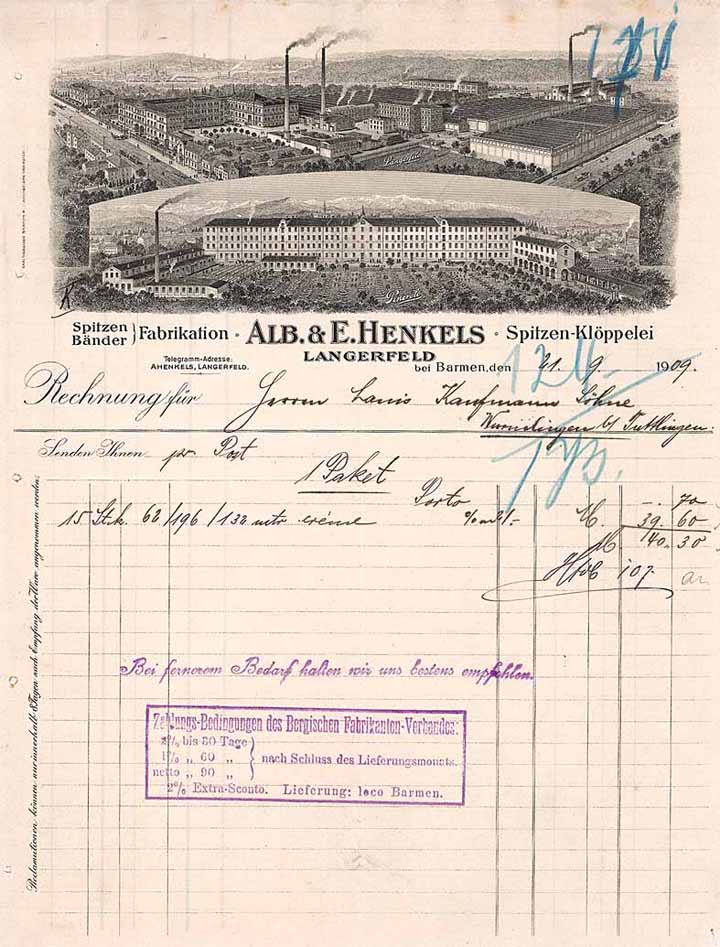 Langerfeld
Spitzen
Bänder } Fabrikation · ALB. & E. HENKELS · Spitzen-Klöppelei
LANGERFELD
Telegramm-Adresse:
AHENKELS, LANGERFELD.
bei Barmen, den 21. 9. 1909.
Rechnung für Herren Louis Kaufmann Söhne
Wurmlingen b/ Tuttlingen.
Senden Ihnen pr Post
1 Paket
Porto —. 70
15 Stck 62/196/132 mtr crème % M. 39. 60
M. 140. 30
107.
Bei fernerem Bedarf halten wir uns bestens empfohlen.
Zahlungs-Bedingungen des Bergischen Fabrikanten-Verbandes:
2% bis 30 Tage
1% „ 60 „ } nach Schluss des Lieferungsmonats.
netto „ 90 „
2% Extra-Sconto. Lieferung: loco Barmen.
Reclamationen können nur innerhalb 8 Tagen nach Empfang der Ware angenommen werden.